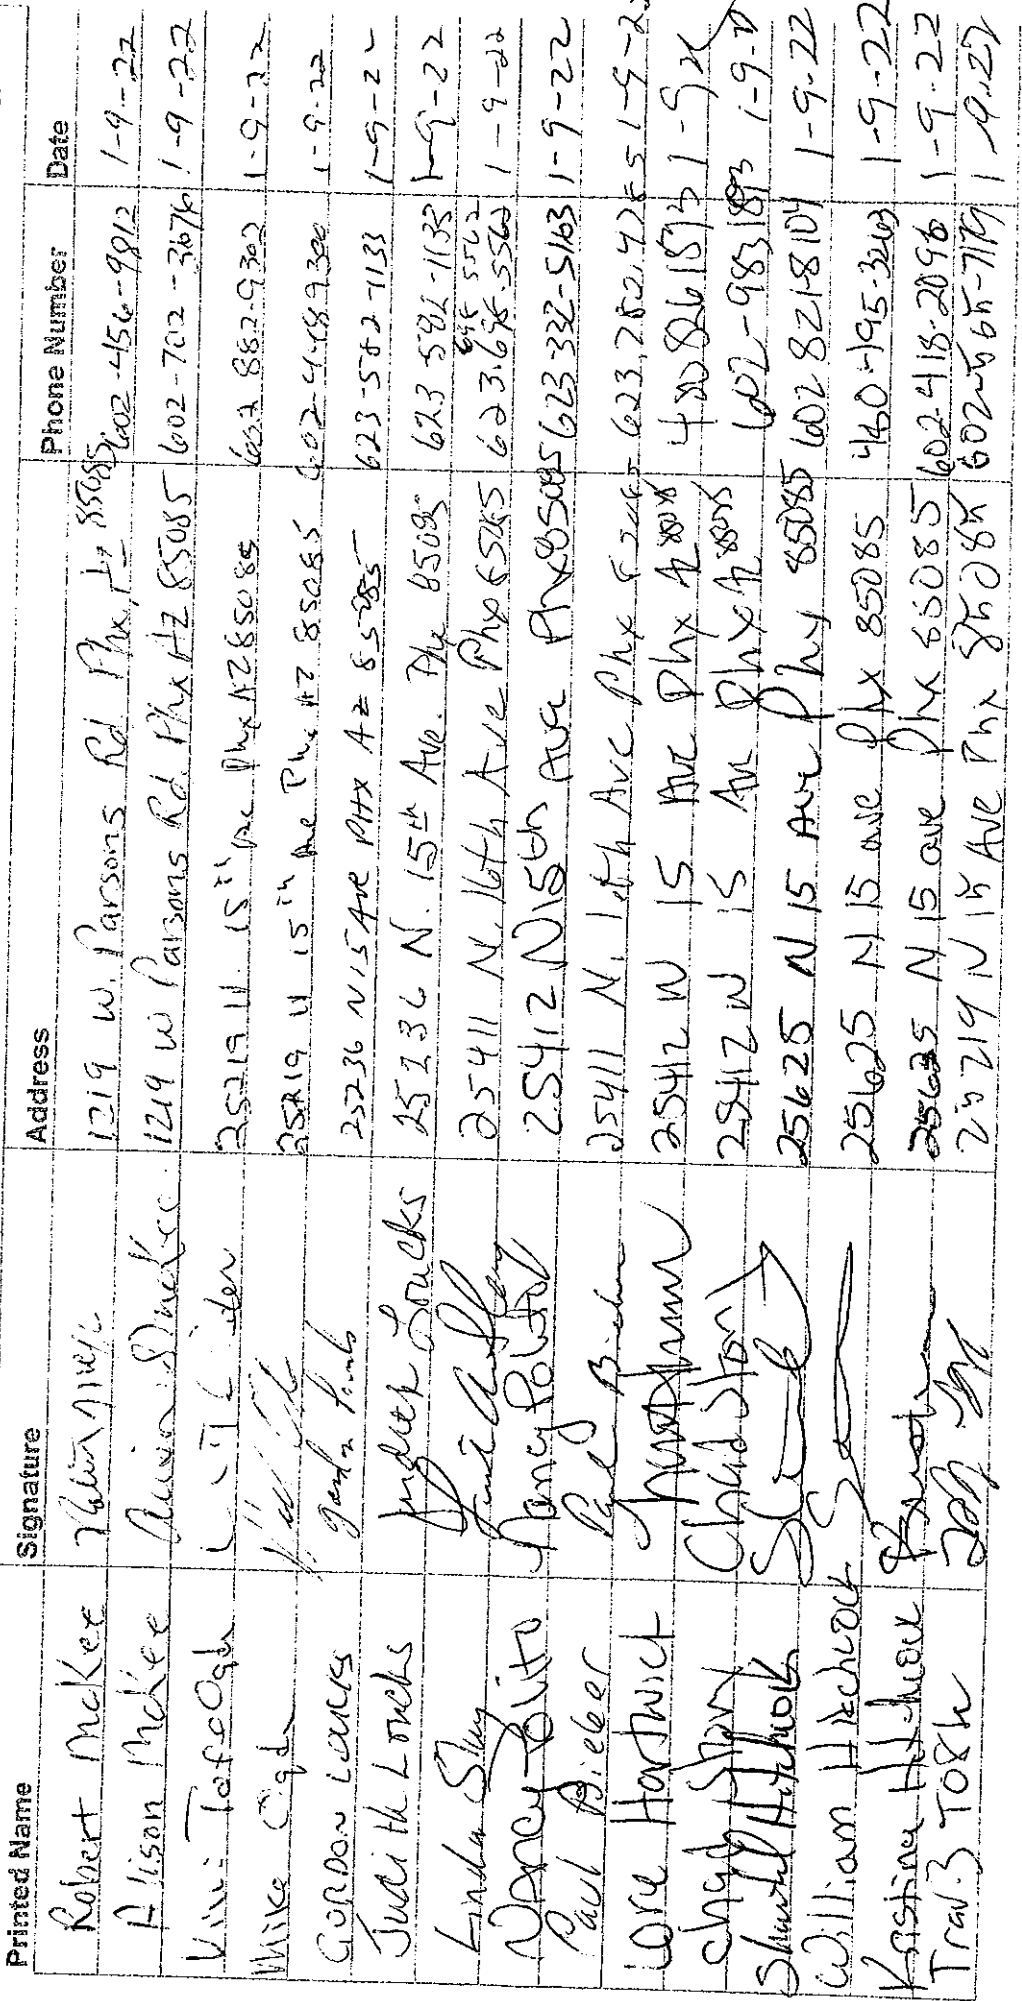 Printed Name Signature Address Phone Number Date
Robert McKee 1219 W. Parsons Rd Phx, 85085 602-456-9812 1-9-22
Alison McKee Alison McKee 1219 W Parsons Rd. Phx AZ 85085 602-702-3676 1-9-22
25219 N. 15th Ave Phx AZ 85085 602 882-9302 1-9-22
Mike Ogden 25219 N 15th Ave Phx AZ 85085 602-448-9300 1-9-22
GORDON LOUCKS Gordon Loucks 25236 N 15 Ave PHX AZ 85085 623-582-1133 1-9-22
Judith Loucks Judith Loucks 25236 N. 15th Ave. Phx 85085 623-582-1133 1-9-22
Linda 25411 N. 16th Ave Phx 85085 623.698.5562 1-9-22
Nancy Polito Nancy Polito 25412 N 15th Ave Phx 85085 623-332-5163 1-9-22
Paul Bieber Paul Bieber 25411 N. 16th Ave Phx 623.282.4285 1-9-22
Lorie Hartwick 25412 N 15 Ave Phx Az 480 826 1873 1-9-22
Chad Story Chad Story 25412 N 15 Ave Phx Az 602-983 1893 1-9-22
Shantel Hitchcock 25625 N 15 Ave Phx 85085 602 821-8104 1-9-22
William Hitchcock 25625 N 15 ave Phx 85085 480-495-3263 1-9-22
Kristina Hitchcock 25625 N 15 ave Phx 85085 602-418-2096 1-9-22
25219 N 15 Ave Phx 85085 1-9-22